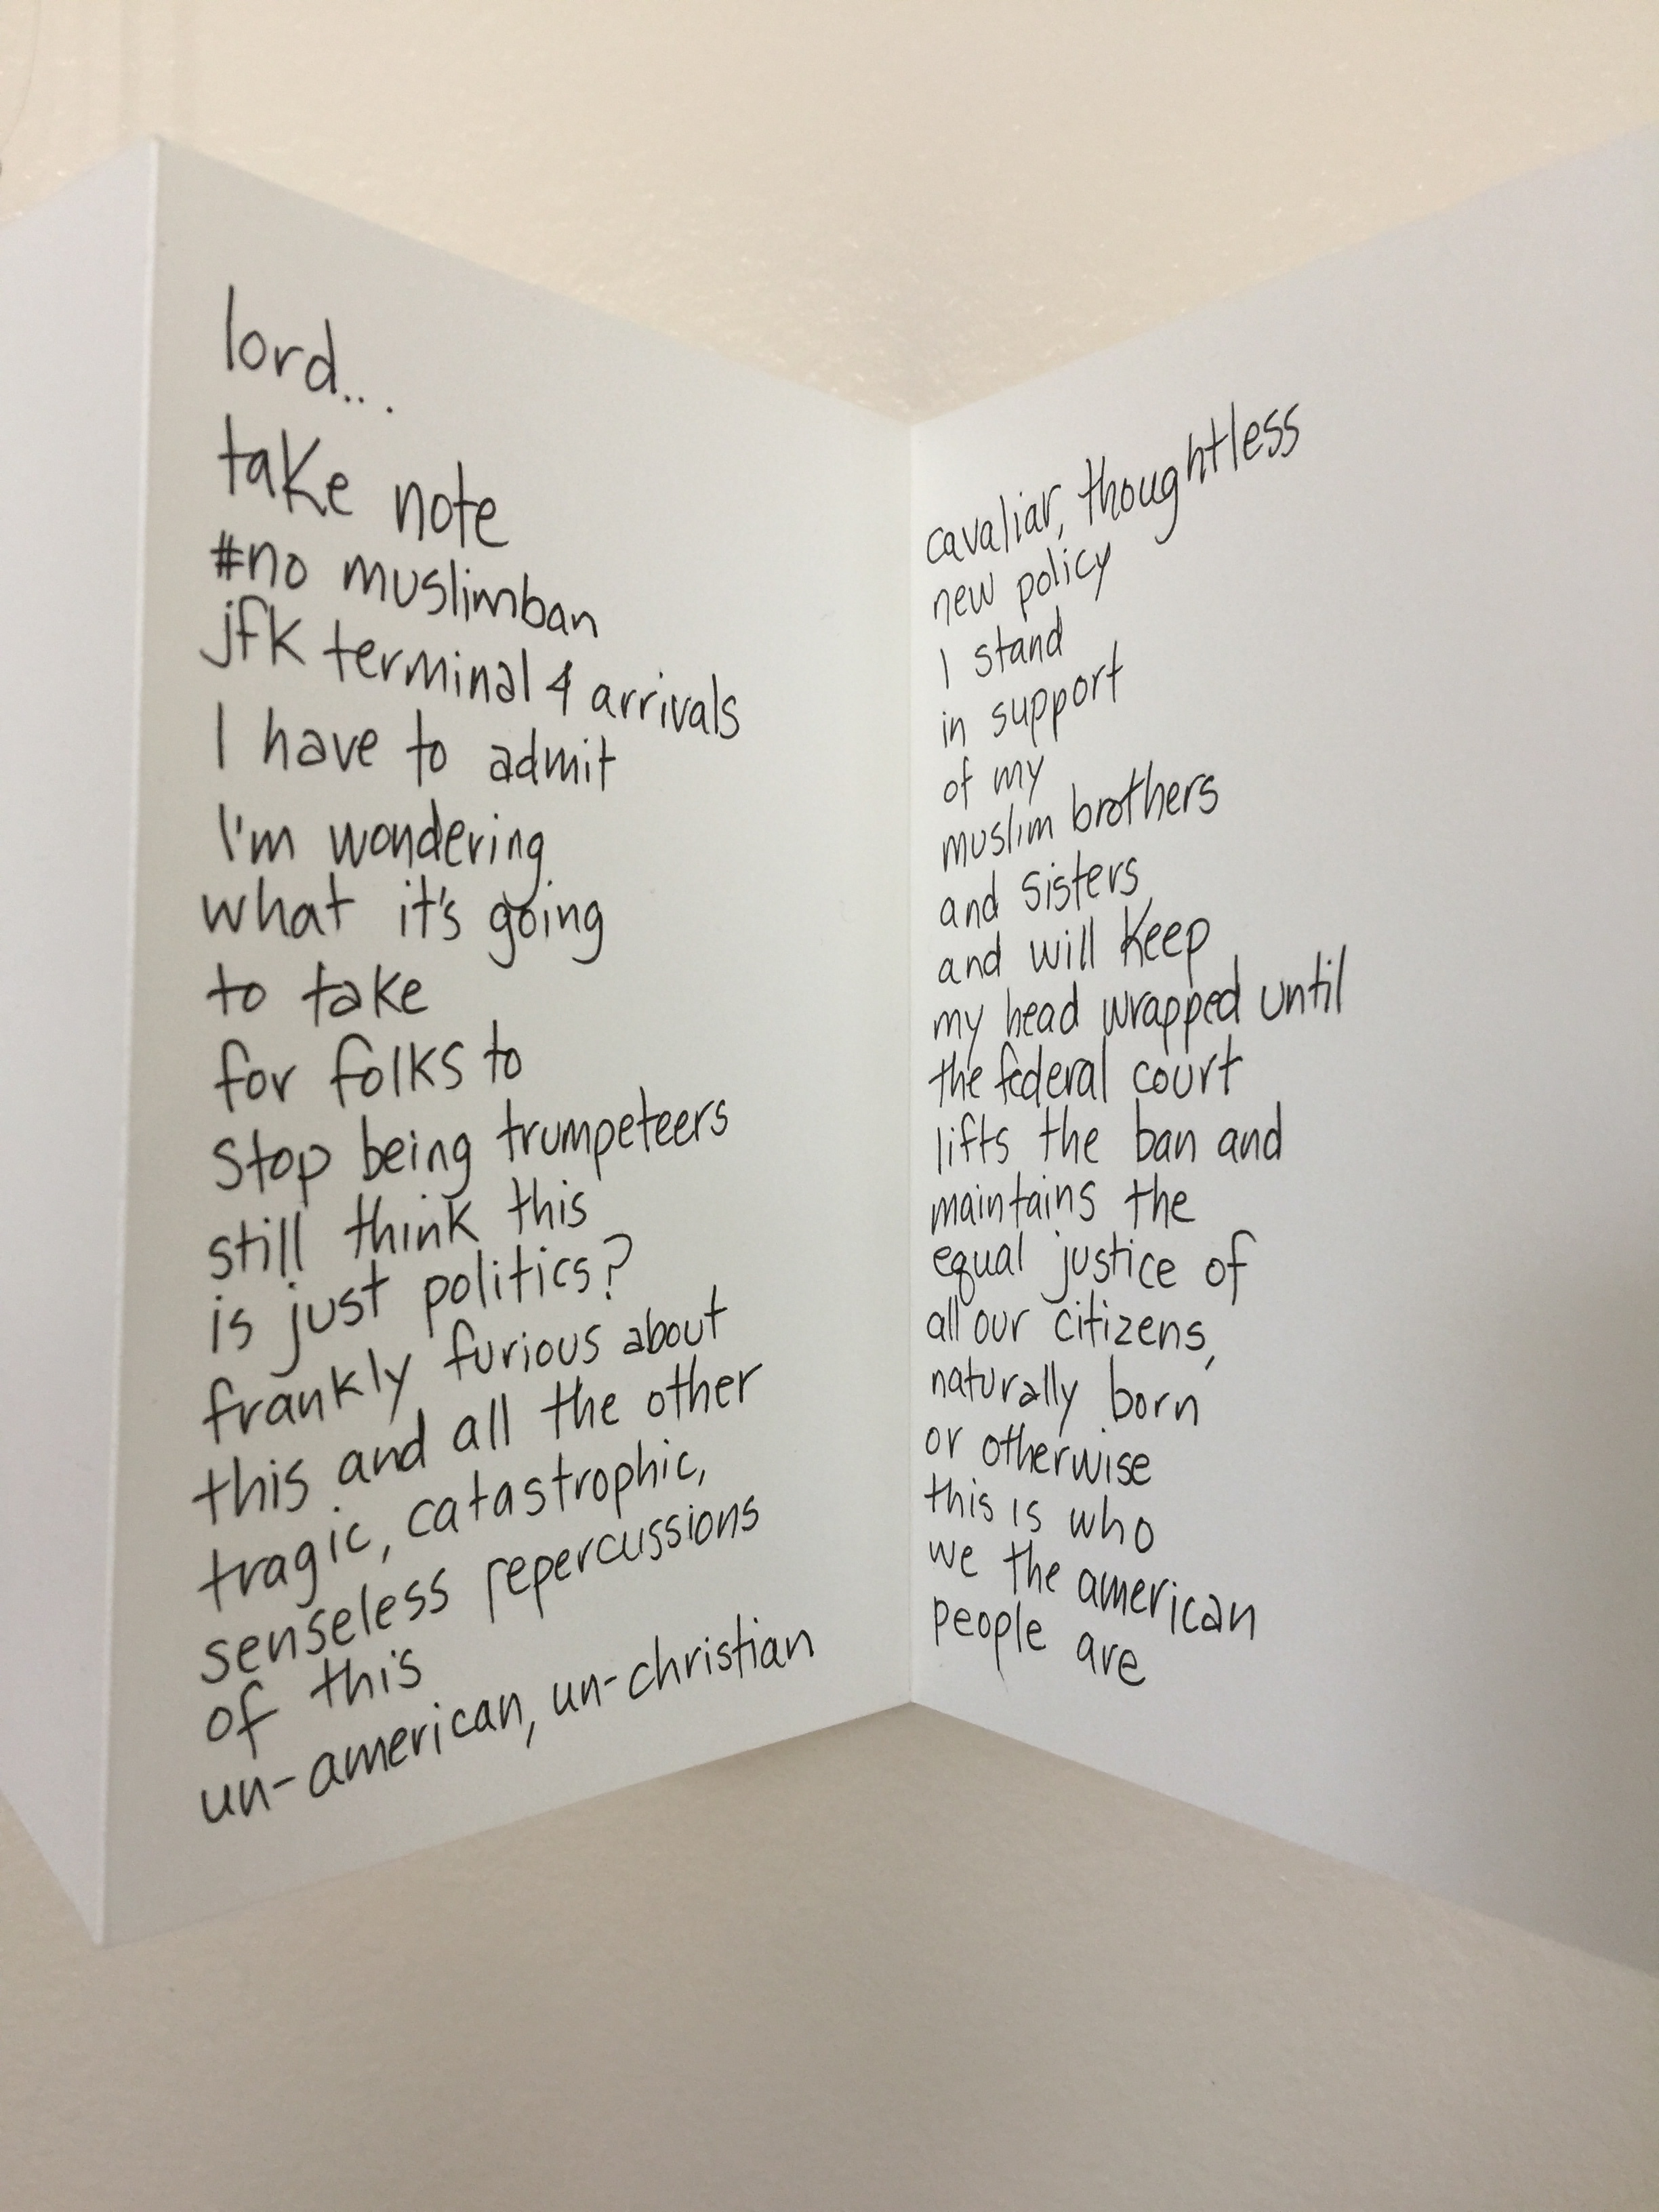 lord...
take note
#no muslimban
jfk terminal 4 arrivals
I have to admit
I'm wondering
what it's going
to take
for folks to
stop being trumpeteers
still think this
is just politics?
frankly furious about
this and all the other
tragic, catastrophic,
senseless repercussions
of this
un-american, un-christian
cavaliar, thoughtless
new policy
I stand
in support
of my
muslim brothers
and sisters
and will keep
my head wrapped until
the federal court
lifts the ban and
maintains the
equal justice of
all our citizens,
naturally born
or otherwise
this is who
we the american
people are